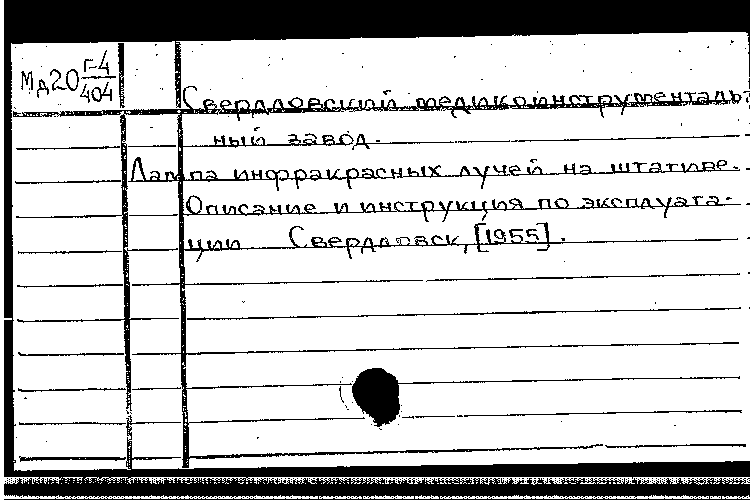 Мд20 Г-4/404
Свердловский медикоинструменталь-
ный завод.
Лампа инфракрасных лучей на штативе.
Описание и инструкция по эксплуата-
ции Свердловск, [1955].